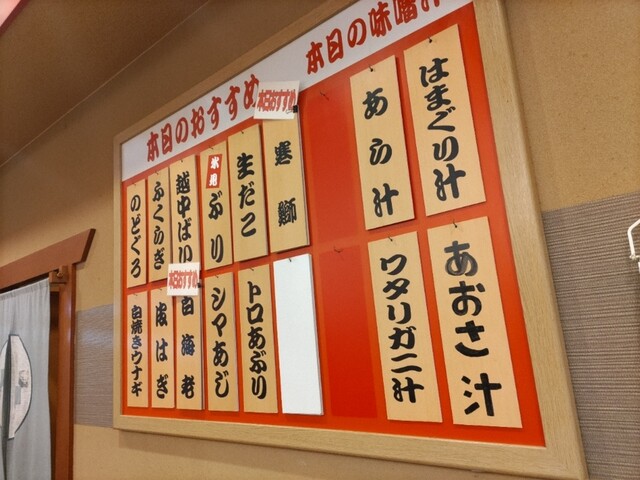 本日の味噌汁
はまぐり汁
あら汁
あおさ汁
ワタリガニ汁
本日のおすすめ
本日おすすめ
寒鰤
生だこ
氷見
ぶり
越中ばい
ふくらぎ
のどぐろ
トロあぶり
シマあじ
本日おすすめ
白海老
皮はぎ
白焼きウナギ